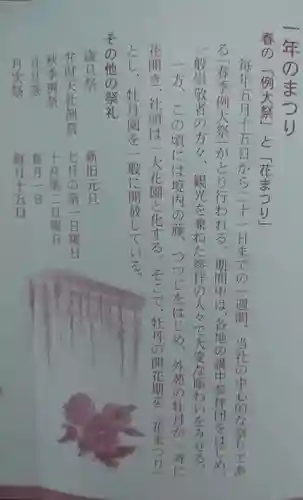 一年のまつり
春の「例大祭」と「花まつり」
毎年五月十五日から二十一日までの一週間、当社の中心的な祭りであ
る「春季例大祭」がとり行われる。期間中は、各地の講中参拝団をはじめ、
一般崇敬者の方々、観光を兼ねた参拝の人々で大変な賑わいをみせる。
一方、この頃には境内の藤、つつじをはじめ、外苑の牡丹が一斉に
花開き、社頭は一大花園と化する。そこで、牡丹の開花期を「花まつり」
とし、牡丹園を一般に開放している。
その他の祭礼
歳旦祭 新旧元旦
弁財天社例祭 七月の第一日曜日
秋季例祭 十月第二日曜日
月旦祭 毎月一日
月次祭 毎月十五日